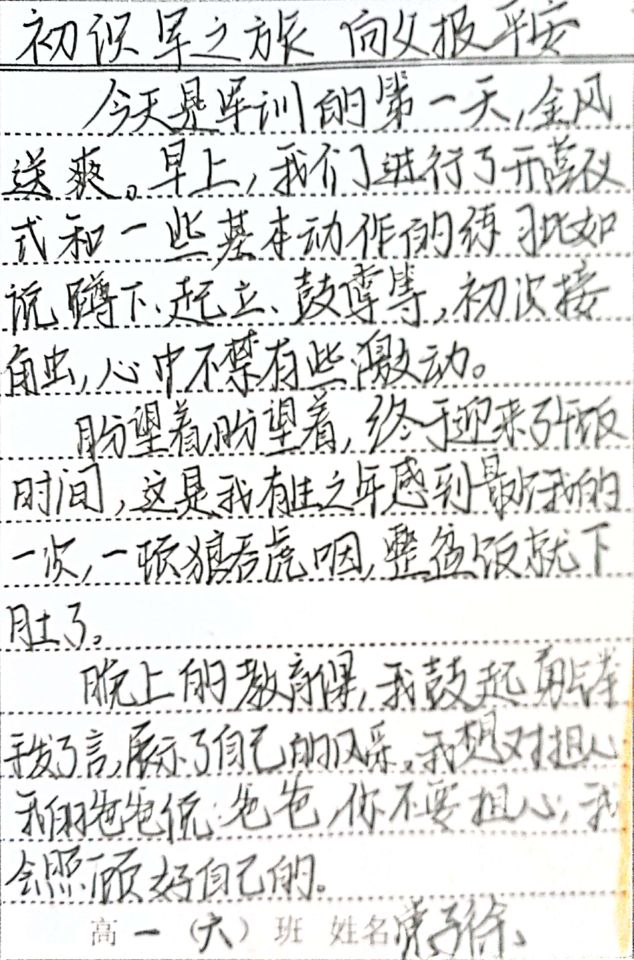 初识军之旅 向父报平安
今天是军训的第一天,金风
送爽。早上,我们进行了开营仪
式和一些基本动作的练习比如
说蹲下、起立、鼓掌等,初次接
触,心中不禁有些激动。
盼望着,盼望着,终于迎来了午饭
时间,这是我有生之年感到最饿的
一次,一顿狼吞虎咽,整盆饭就下
肚了。
晚上的教育课,我鼓起勇气举
手发了言,展示了自己的风采。我想对担心
我的爸爸说:爸爸,你不要担心,我
会照顾好自己的。
高一(六)班 姓名